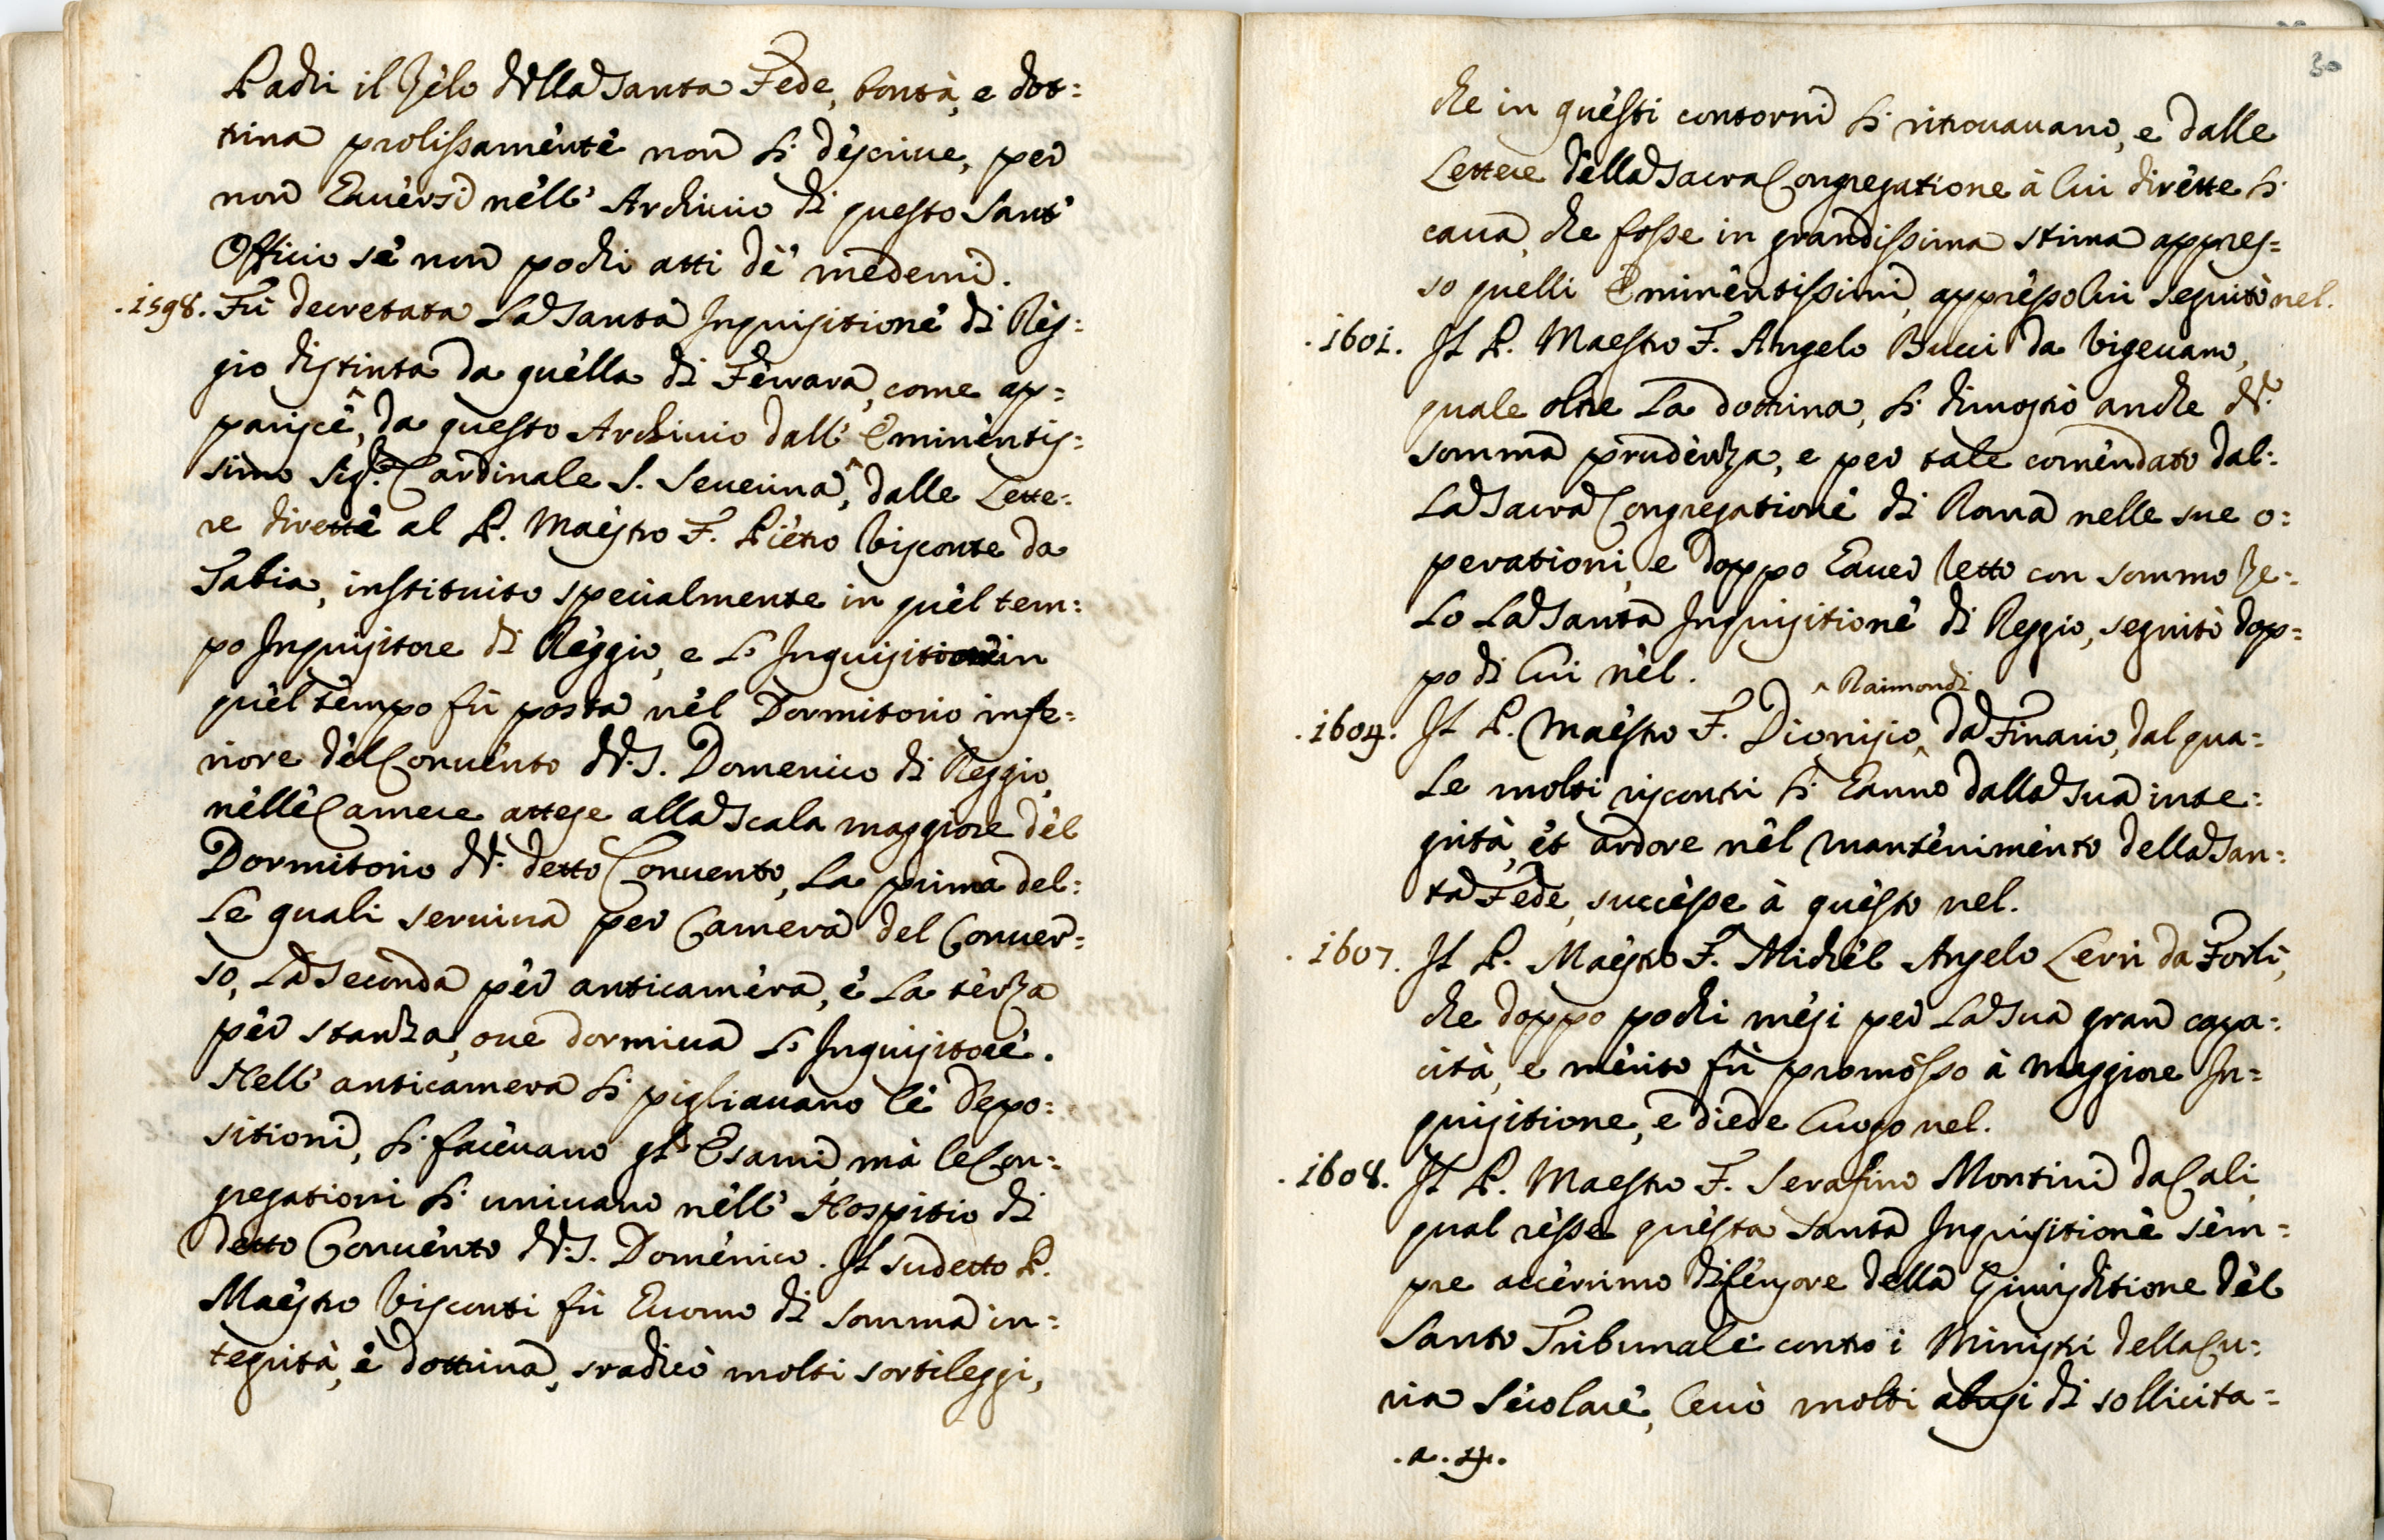 Padri il Zelo della Santa Fede, bontà, e dot=
trina prolissamente non si descrive, per
non haversi nell' Archivio di questo Sant'
Officio se non pochi atti de' medemi.
.1598. Fù decretata la Santa Inquisitione di Reg=
gio distinta da quella di Ferrara, come ap=
parisce, da questo Archivio dall' Eminentis=
simo Sig.r Cardinale S. Severina, dalle Lette=
re dirette al P. Maestro F. Pietro Visconte da
Tabia, instituito specialmente in quel tem=
po Inquisitore di Reggio, e l'Inquisition in
quel tempo fù posta nel Dormitorio infe=
riore del Convento di S. Domenico di Reggio,
nelle Camere attese alla Scala maggiore del
Dormitorio di detto Convento, la prima del=
le quali serviva per Camera del Conver=
so, la Seconda per anticamera, e la terza
per stanza, ove dormiva l'Inquisitore.
Nell' anticamera si pigliavano le Depo=
sitioni, si facevano gl'Esami, mà le Con=
gregationi si univano nell' Hospitio di
detto Convento di S. Domenico. Il sudetto P.
Maestro Visconti fù huomo di somma in=
tegrità, e dottrina, sradicò molti sortileggi,
30
che in questi contorni si ritrovavano, e dalle
Lettere della Sacra Congregatione à lui dirette si
cava, che fosse in grandissima stima appres=
so quelli Eminentissimi, appresso lui seguitò nel.
.1601. Il P. Maestro F. Angelo Bucci da Vigevano,
quale oltre la dottrina, si dimostrò anche di
somma prudenza, e per tale comendato dal=
la Sacra Congregatione di Roma nelle sue o=
perationi, e doppo haver retto con sommo ze=
lo la Santa Inquisitione di Reggio, seguitò dop=
po di lui nel.
^ Raimondi
.1604. Il P. Maestro F. Dionisio ^ da Finario, dal qua=
le molti riscontri si hanno dalla sua inte=
grità, et ardore nel mantenimento della San=
ta Fede, successe à questo nel.
.1607. Il P. Maestro F. Michel Angelo Lerri da Forlì,
che doppo pochi mesi per la sua gran capa=
cità, e merito fù promosso à maggiore In=
quisitione, e diede luogo nel.
.1608. Il P. Maestro F. Serafino Montini da Cali,
qual resse questa Santa Inquisitione sem=
pre accerrimo difensore della Giurisditione del
Santo Tribunale contro i Ministri della Cu=
ria Secolare, levò molti abusi di sollicita=